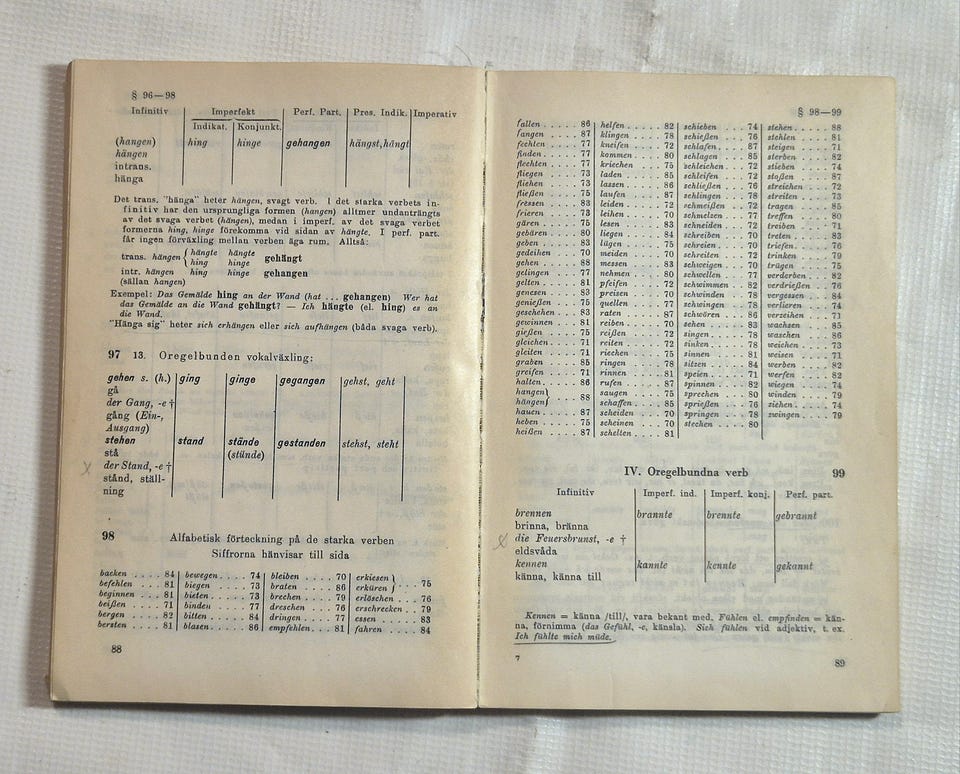 § 96—98
Infinitiv Imperfekt Perf. Part. Pres. Indik. Imperativ
Indikat. Konjunkt.
(hangen) hing hinge gehangen hängst, hängt
hängen
intrans.
hänga
Det trans. "hänga" heter hängen, svagt verb. I det starka verbets in-
finitiv har den ursprungliga formen (hangen) alltmer undanträngts
av det svaga verbet (hängen), medan i imperf. av det svaga verbet
formerna hing, hinge förekomma vid sidan av hängte. I perf. part.
får ingen förväxling mellan verben äga rum. Alltså:
trans. hängen { hängte hängte gehängt
hing hinge
intr. hängen hing hinge gehangen
(sällan hangen)
Exempel: Das Gemälde hing an der Wand (hat ... gehangen) Wer hat
das Gemälde an die Wand gehängt? — Ich hängte (el. hing) es an
die Wand.
"Hänga sig" heter sich erhängen eller sich aufhängen (båda svaga verb).
97 13. Oregelbunden vokalväxling:
gehen s. (h.) ging ginge gegangen gehst, geht
gå
der Gang, -e †
gång (Ein-,
Ausgang)
stehen stand stände gestanden stehst, steht
stå (stünde)
der Stand, -e †
stånd, ställ-
ning
98 Alfabetisk förteckning på de starka verben
Siffrorna hänvisar till sida
backen . . . . 84 bewegen . . . . 74 bleiben . . . . 70 erkiesen } 75
befehlen . . . 81 biegen . . . . 73 braten . . . . 86 erküren
beginnen . . . 81 bieten . . . . 73 brechen . . . 79 erlöschen . . . 76
beißen . . . . 71 binden . . . . 77 dreschen . . . 76 erschrecken . . 79
bergen . . . . 82 bitten . . . . 84 dringen . . . 77 essen . . . . 83
bersten . . . . 81 blasen . . . . 86 empfehlen . . 81 fahren . . . . 84
88
§ 98—99
fallen . . . . . 86 helfen . . . . . 82 schieben . . . . 74 stehen . . . . . 88
fangen . . . . 87 klingen . . . . 78 schießen . . . . 76 stehlen . . . . 81
fechten . . . . 77 kneifen . . . . 72 schlafen . . . . 87 steigen . . . . 71
finden . . . . 77 kommen . . . . 80 schlagen . . . . 85 sterben . . . . 82
flechten . . . . 77 kriechen . . . . 75 schleichen . . . 72 stieben . . . . 74
fliegen . . . . 73 laden . . . . . 85 schleifen . . . . 72 stoßen . . . . 87
fliehen . . . . 73 lassen . . . . . 86 schließen . . . . 76 streichen . . . 72
fließen . . . . 75 laufen . . . . . 87 schlingen . . . . 78 streiten . . . . 73
fressen . . . . 83 leiden . . . . . 72 schmeißen . . . 72 tragen . . . . . 85
frieren . . . . 73 leihen . . . . . 70 schmelzen . . . 77 treffen . . . . 80
gären . . . . . 75 lesen . . . . . 83 schneiden . . . 72 treiben . . . . 71
gebären . . . . 80 liegen . . . . . 84 schreiben . . . . 70 treten . . . . . 83
geben . . . . . 83 lügen . . . . . 75 schreien . . . . 70 triefen . . . . 76
gedeihen . . . 70 meiden . . . . 70 schreiten . . . . 72 trinken . . . . 79
gehen . . . . . 88 messen . . . . 83 schweigen . . . 70 trügen . . . . . 75
gelingen . . . . 77 nehmen . . . . 80 schwellen . . . . 77 verderben . . . 82
gelten . . . . . 81 pfeifen . . . . 72 schwimmen . . . 82 verdrießen . . . 76
genesen . . . . 83 preisen . . . . 70 schwinden . . . 78 vergessen . . . 84
genießen . . . . 75 quellen . . . . 77 schwingen . . . 78 verlieren . . . . 74
geschehen . . . 83 raten . . . . . 87 schwören . . . . 86 verzeihen . . . 71
gewinnen . . . 81 reiben . . . . . 70 sehen . . . . . 83 wachsen . . . . 85
gießen . . . . . 75 reißen . . . . . 72 singen . . . . . 78 waschen . . . . 86
gleichen . . . . 71 reiten . . . . . 72 sinken . . . . . 78 weichen . . . . 73
gleiten . . . . . 71 riechen . . . . 75 sinnen . . . . . 81 weisen . . . . . 71
graben . . . . 85 ringen . . . . . 78 sitzen . . . . . 84 werben . . . . 82
greifen . . . . 71 rinnen . . . . . 81 speien . . . . . 71 werfen . . . . . 82
halten . . . . . 86 rufen . . . . . 87 spinnen . . . . 82 wiegen . . . . . 74
hangen } 88 saugen . . . . . 75 sprechen . . . . 80 winden . . . . 79
hängen schaffen . . . . 85 sprießen . . . . 76 ziehen . . . . . 74
hauen . . . . . 87 scheiden . . . . 70 springen . . . . 78 zwingen . . . . 79
heben . . . . . 75 scheinen . . . . 70 stechen . . . . 80
heißen . . . . . 87 schelten . . . . 81
IV. Oregelbundna verb 99
Infinitiv Imperf. ind. Imperf. konj. Perf. part.
brennen brannte brennte gebrannt
brinna, bränna
die Feuersbrunst, -e †
eldsvåda
kennen kannte kennte gekannt
känna, känna till
Kennen = känna /till/, vara bekant med. Fühlen el. empfinden = kän-
na, förnimma (das Gefühl, -e, känsla). Sich fühlen vid adjektiv, t. ex.
Ich fühlte mich müde.
7 89